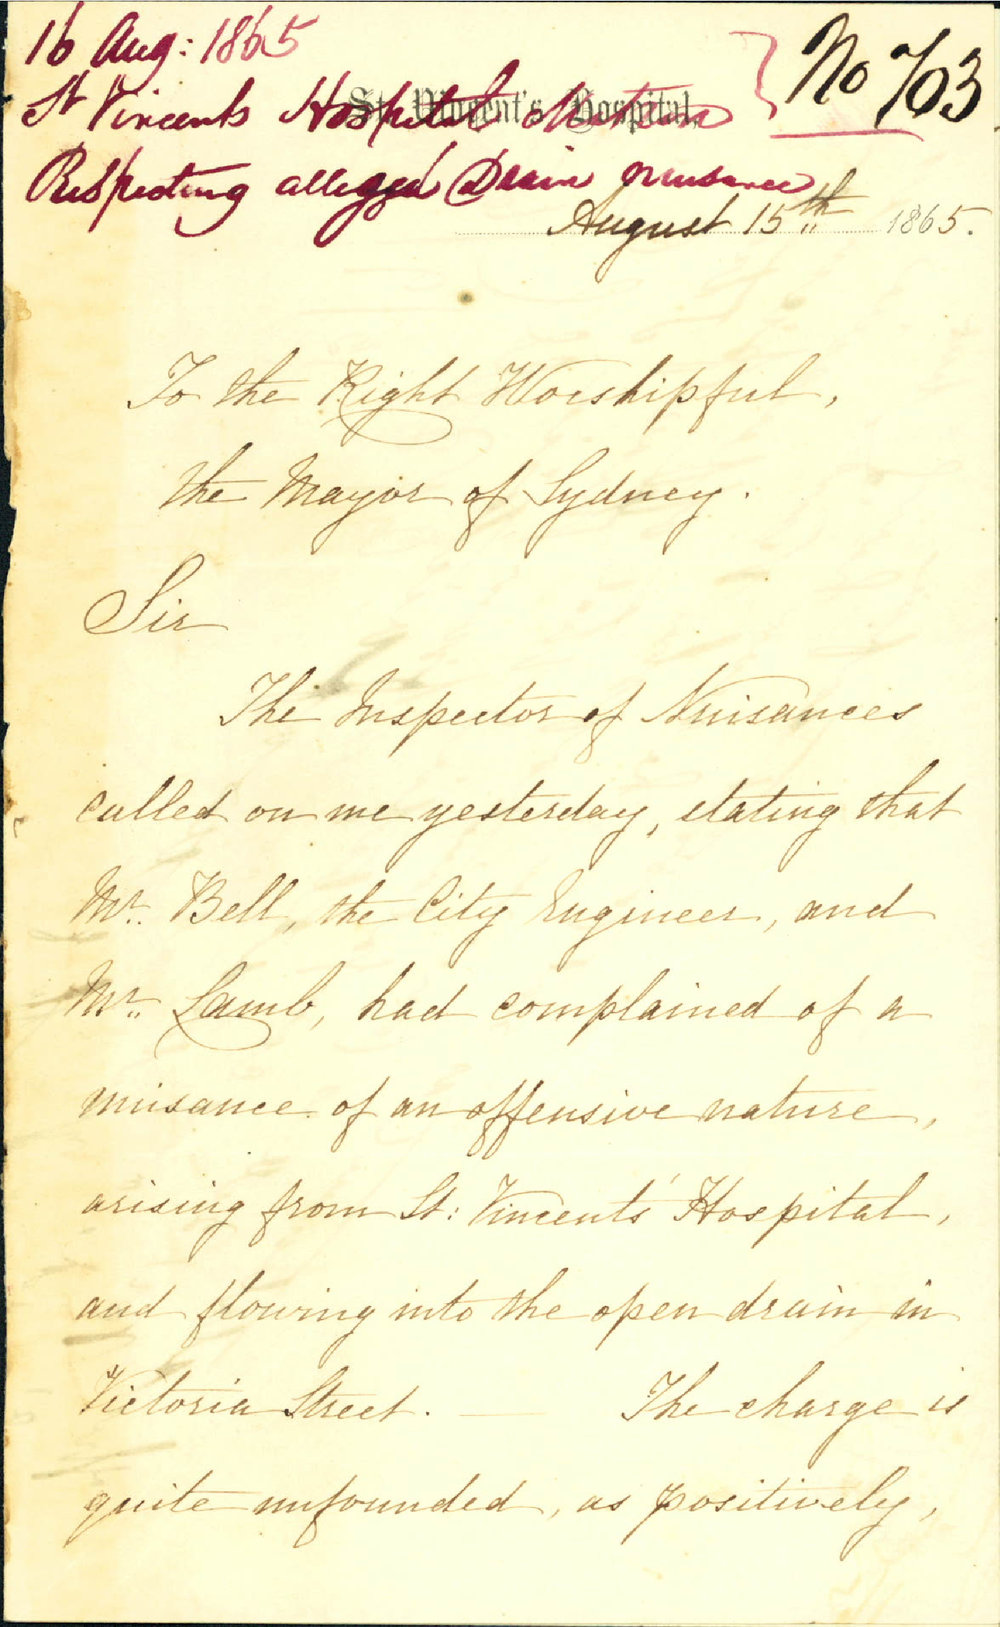 16 Aug: 1865
No 703
St Vincents Hospital
St. Vincent's Hospital,
Respecting alleged Drain nuisance
August 15th 1865.
To the Right Worshipful,
the Mayor of Sydney.
Sir
The Inspector of Nuisances
called on me yesterday, stating that
Mr. Bell, the City Engineer, and
Mr. Lamb, had complained of a
nuisance of an offensive nature,
arising from St: Vincents' Hospital,
and flowing into the open drain in
Victoria Street. — The charge is
quite unfounded, as positively,